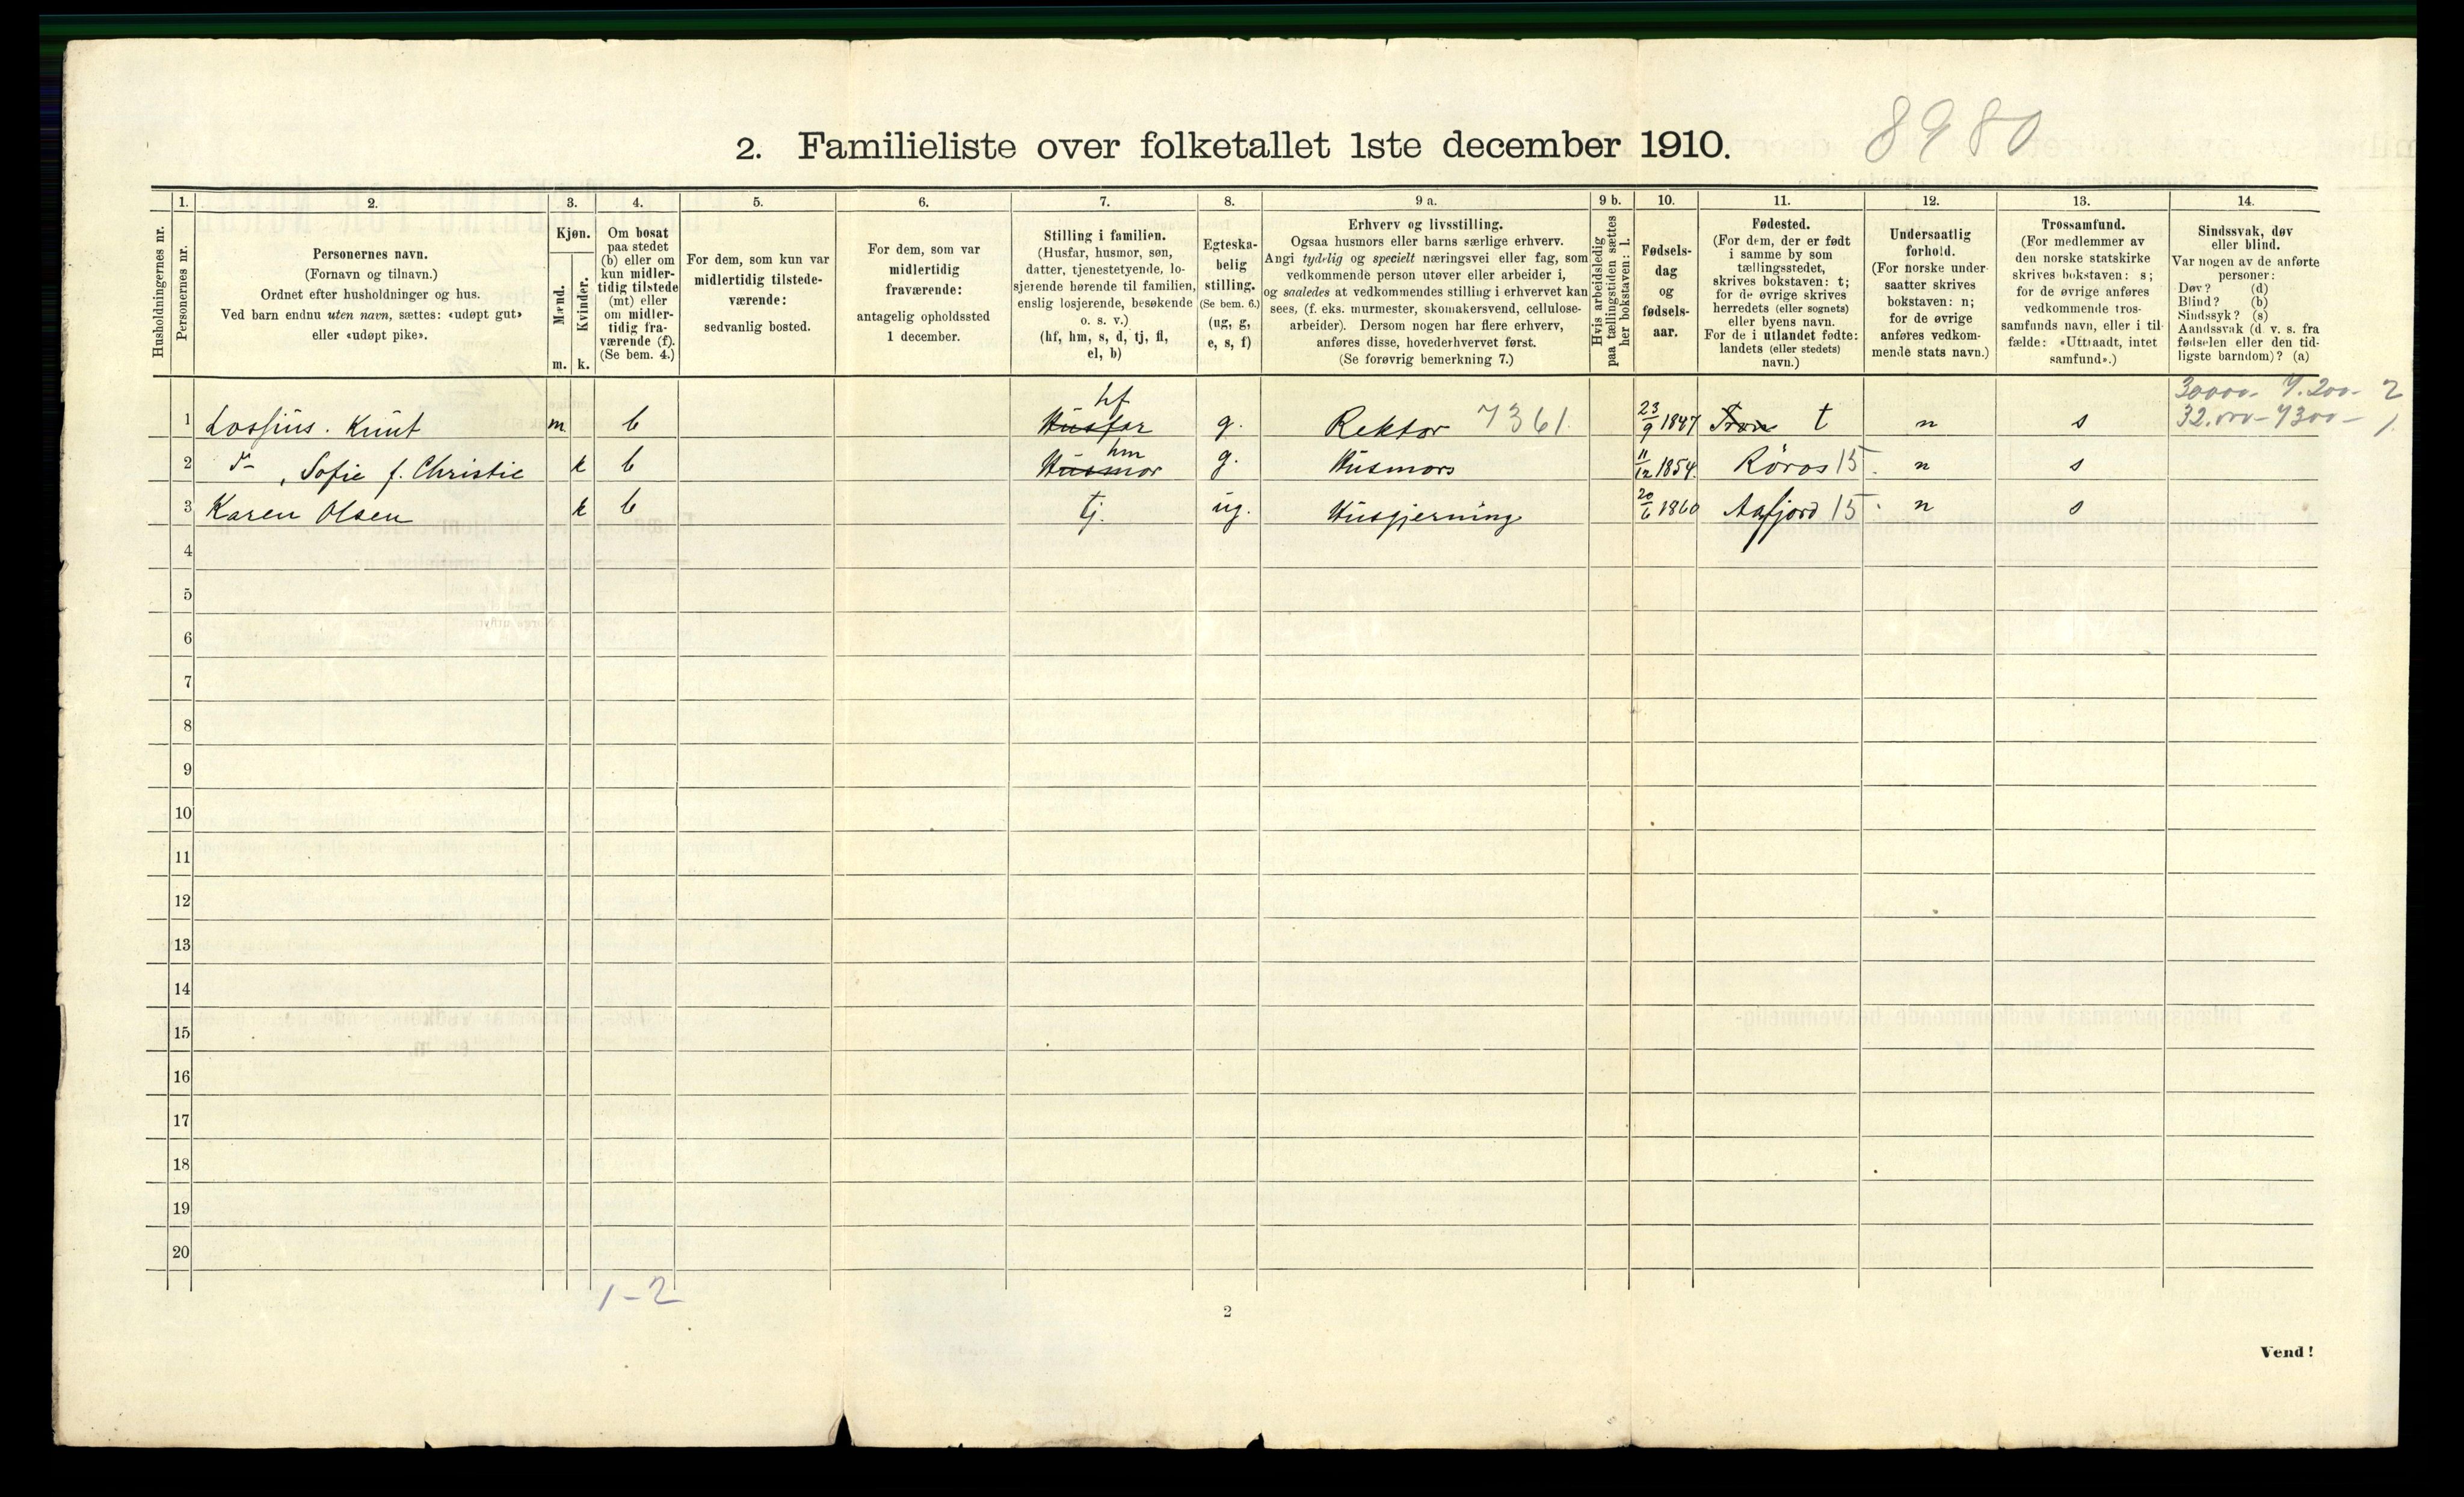 2. Familieliste over folketallet 1ste december 1910. 8980
Husholdningernes nr.
1.
Personernes nr.
2.
Personernes navn.
(Fornavn og tilnavn.)
Ordnet efter husholdninger og hus.
Ved barn endnu uten navn, sættes: «udøpt gut»
eller «udøpt pike».
3.
Kjøn.
Mænd.
Kvinder.
m. k.
4.
Om bosat
paa stedet
(b) eller om
kun midler-
tidig tilstede
(mt) eller
om midler-
tidig fra-
værende (f).
(Se bem. 4.)
5.
For dem, som kun var
midlertidig tilstede-
værende:
sedvanlig bosted.
6.
For dem, som var
midlertidig
fraværende:
antagelig opholdssted
1 december.
7.
Stilling i familien.
(Husfar, husmor, søn,
datter, tjenestetyende, lo-
sjerende hørende til familien,
enslig losjerende, besøkende
o. s. v.)
(hf, hm, s, d, tj, fl,
el, b)
8.
Egteska-
belig
stilling.
(Se bem. 6.)
(ug, g,
e, s, f)
9 a.
Erhverv og livsstilling.
Ogsaa husmors eller barns særlige erhverv.
Angi tydelig og specielt næringsvei eller fag, som
vedkommende person utøver eller arbeider i,
og saaledes at vedkommendes stilling i erhvervet kan
sees, (f. eks. murmester, skomakersvend, cellulose-
arbeider). Dersom nogen har flere erhverv,
anføres disse, hovederhvervet først.
(Se forøvrig bemerkning 7.)
9 b.
Hvis arbeidsledig
paa tællingstiden sættes
her bokstaven: l.
10.
Fødsels-
dag
og
fødsels-
aar.
11.
Fødested.
(For dem, der er født
i samme by som
tællingsstedet,
skrives bokstaven: t;
for de øvrige skrives
herredets (eller sognets)
eller byens navn.
For de i utlandet fødte:
landets (eller stedets)
navn.)
12.
Undersaatlig
forhold.
(For norske under-
saatter skrives
bokstaven: n;
for de øvrige
anføres vedkom-
mende stats navn.)
13.
Trossamfund.
(For medlemmer av
den norske statskirke
skrives bokstaven: s;
for de øvrige anføres
vedkommende tros-
samfunds navn, eller i til-
fælde: «Uttraadt, intet
samfund».)
14.
Sindssvak, døv
eller blind.
Var nogen av de anførte
personer:
Døv? (d)
Blind? (b)
Sindssyk? (s)
Aandssvak (d. v. s. fra
fødselen eller den tid-
ligste barndom)? (a)
30000- 7.200- 2
1 Lossius. Knut m b Husfar hf g. Rektor 7361. 23/9 1847 t n s 32.000-7300- 1
2 d- , Sofie f. Christie k b Husmor hm g. Husmors 11/12 1854. Röros 15. n s
3 Karen Olsen k b tj. ug. Husgjerning 20/6 1860 Aafjord 15. n s
4
5
6
7
8
9
10
11
12
13
14
15
16
17
18
19
20
1-2
2
Vend!